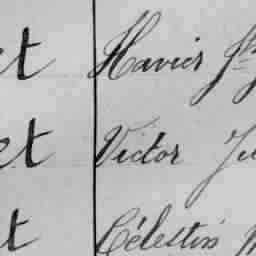 et Xavier
et Victor
t Célestin